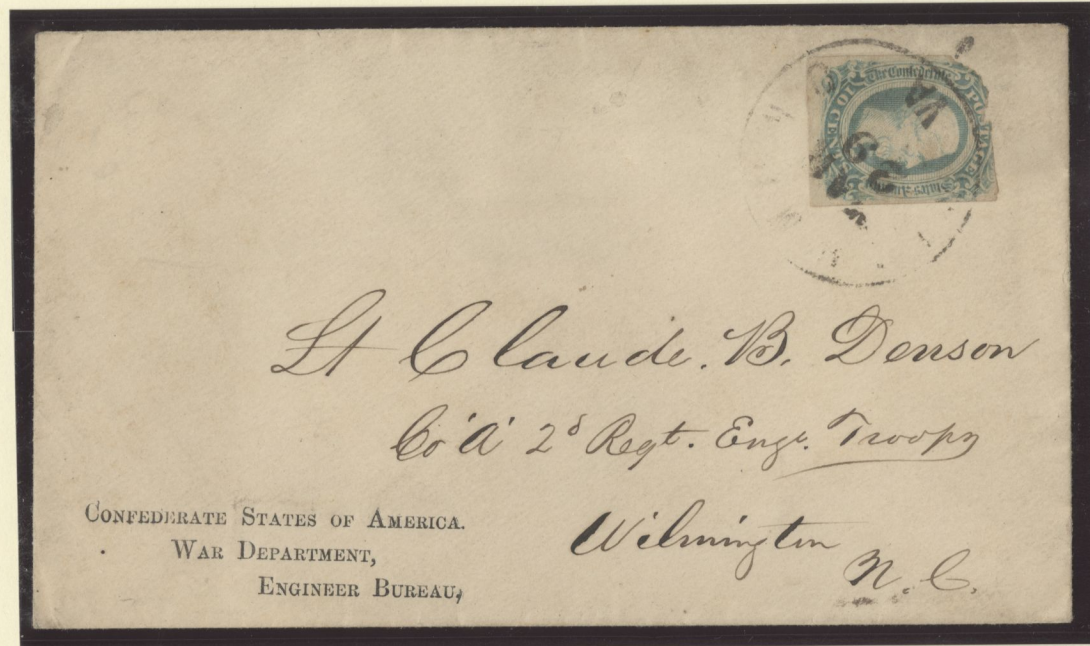 The Confederate
States America
POSTAGE
VA
Lt Claude. B. Denson
Co 'A' 2d Regt. Engr. Troops
Wilmington
N. C.
CONFEDERATE STATES OF AMERICA.
WAR DEPARTMENT,
ENGINEER BUREAU,